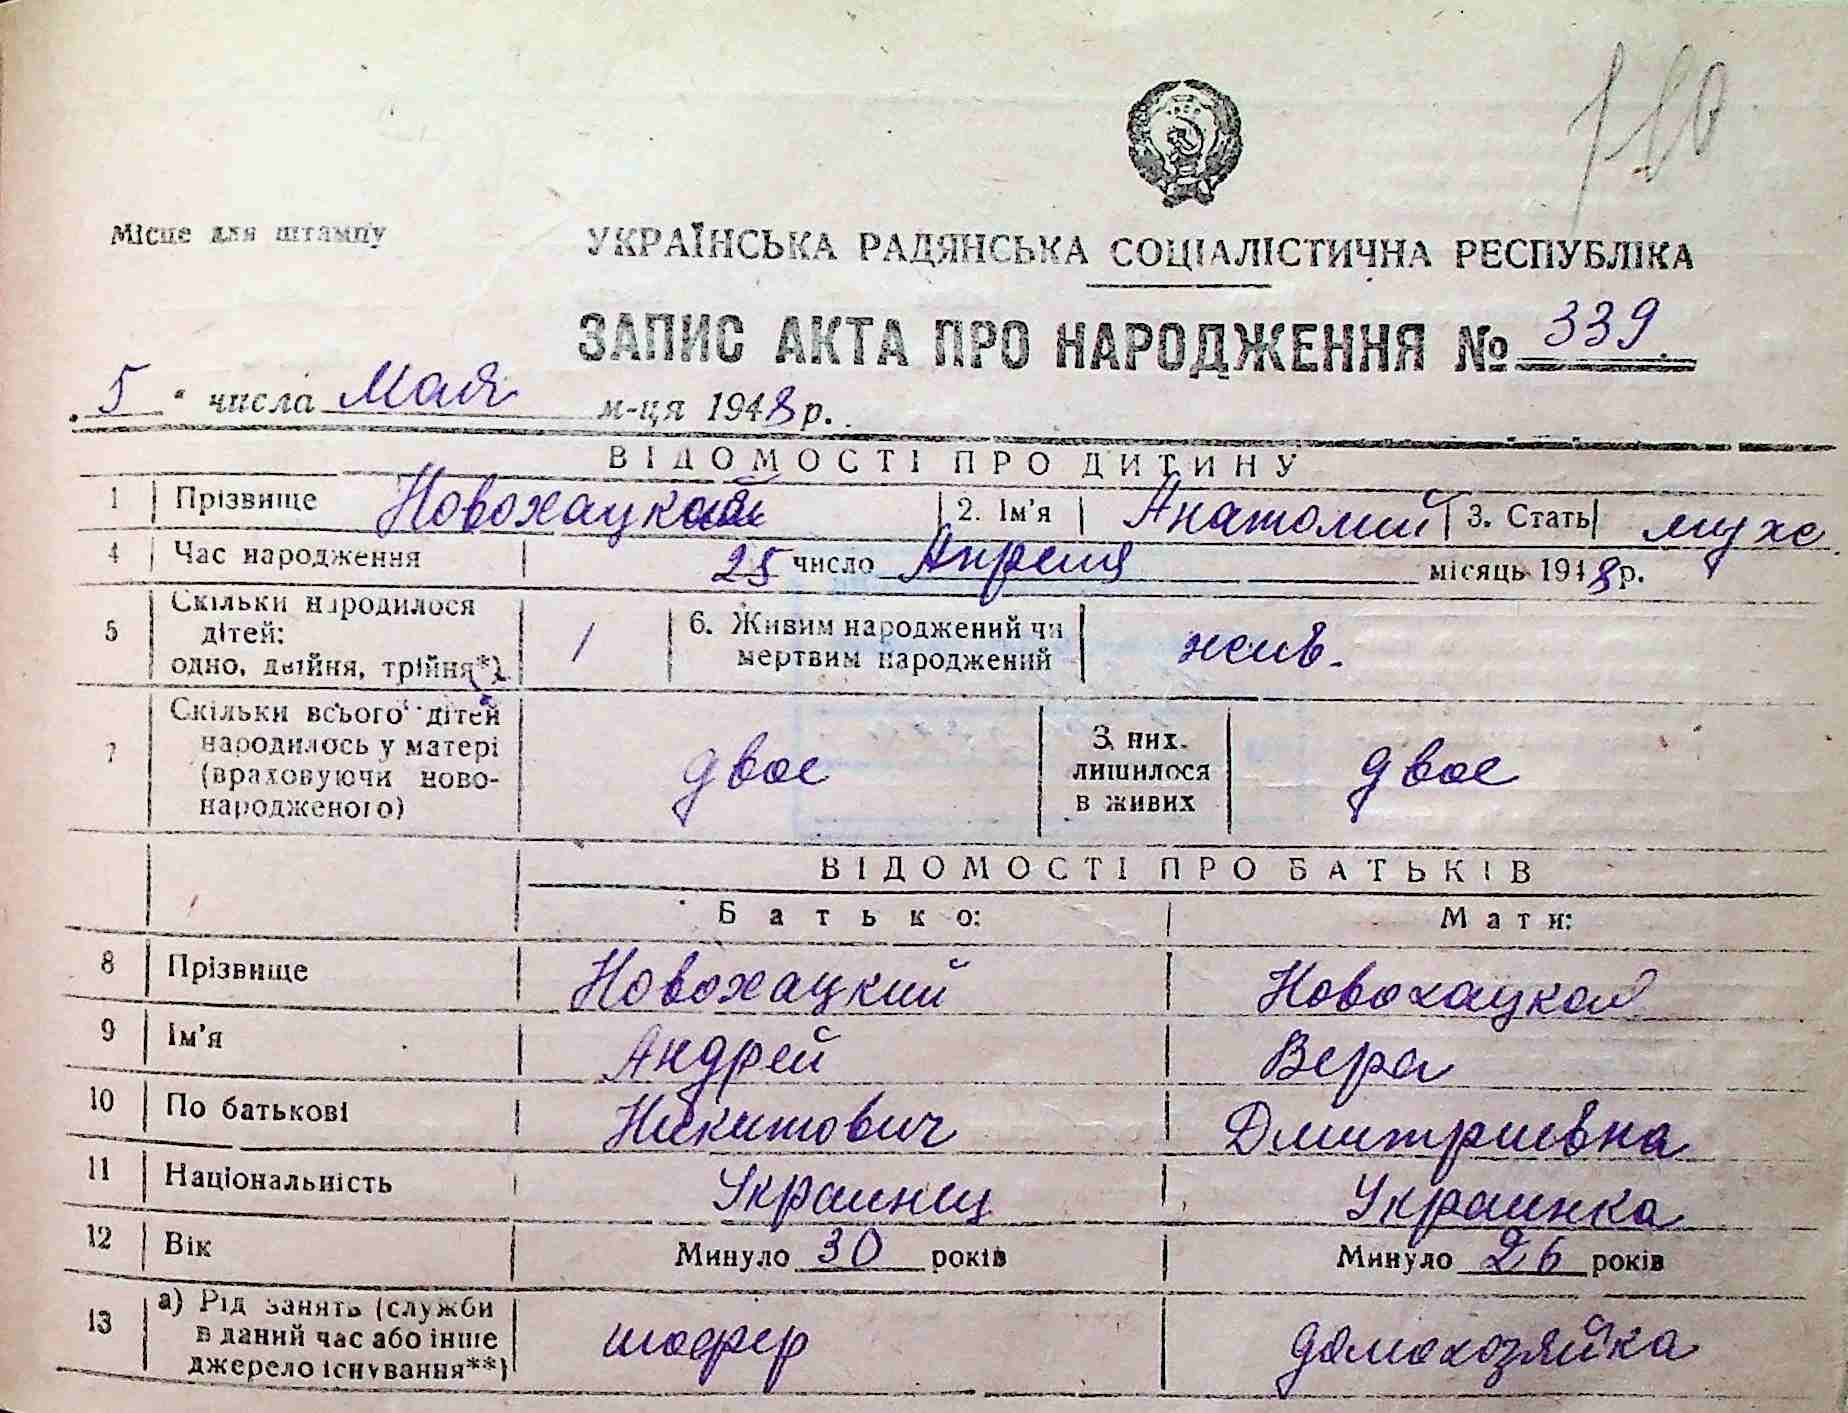 Місце для штампу
УКРАЇНСЬКА РАДЯНСЬКА СОЦІАЛІСТИЧНА РЕСПУБЛІКА
ЗАПИС АКТА ПРО НАРОДЖЕННЯ № 339
„5“ числа Мая м-ця 1948 р.
ВІДОМОСТІ ПРО ДИТИНУ
1 Прізвище Новохацкий 2. Ім'я Анатолий 3. Стать мужс
4 Час народження 25 число Апреля місяць 1948 р.
5 Скільки народилося дітей: одно, двійня, трійня*) 1 6. Живим народжений чи мертвим народжений жив.
7 Скільки всього дітей народилось у матері (враховуючи ново-народженого) двое З них лишилося в живих двое
ВІДОМОСТІ ПРО БАТЬКІВ
Батько: Мати:
8 Прізвище Новохацкий Новохацкая
9 Ім'я Андрей Вера
10 По батькові Никитович Дмитриевна
11 Національність Украинец Украинка
12 Вік Минуло 30 років Минуло 26 років
13 а) Рід занять (служби в даний час або інше джерело існування**) шофер домохозяйка